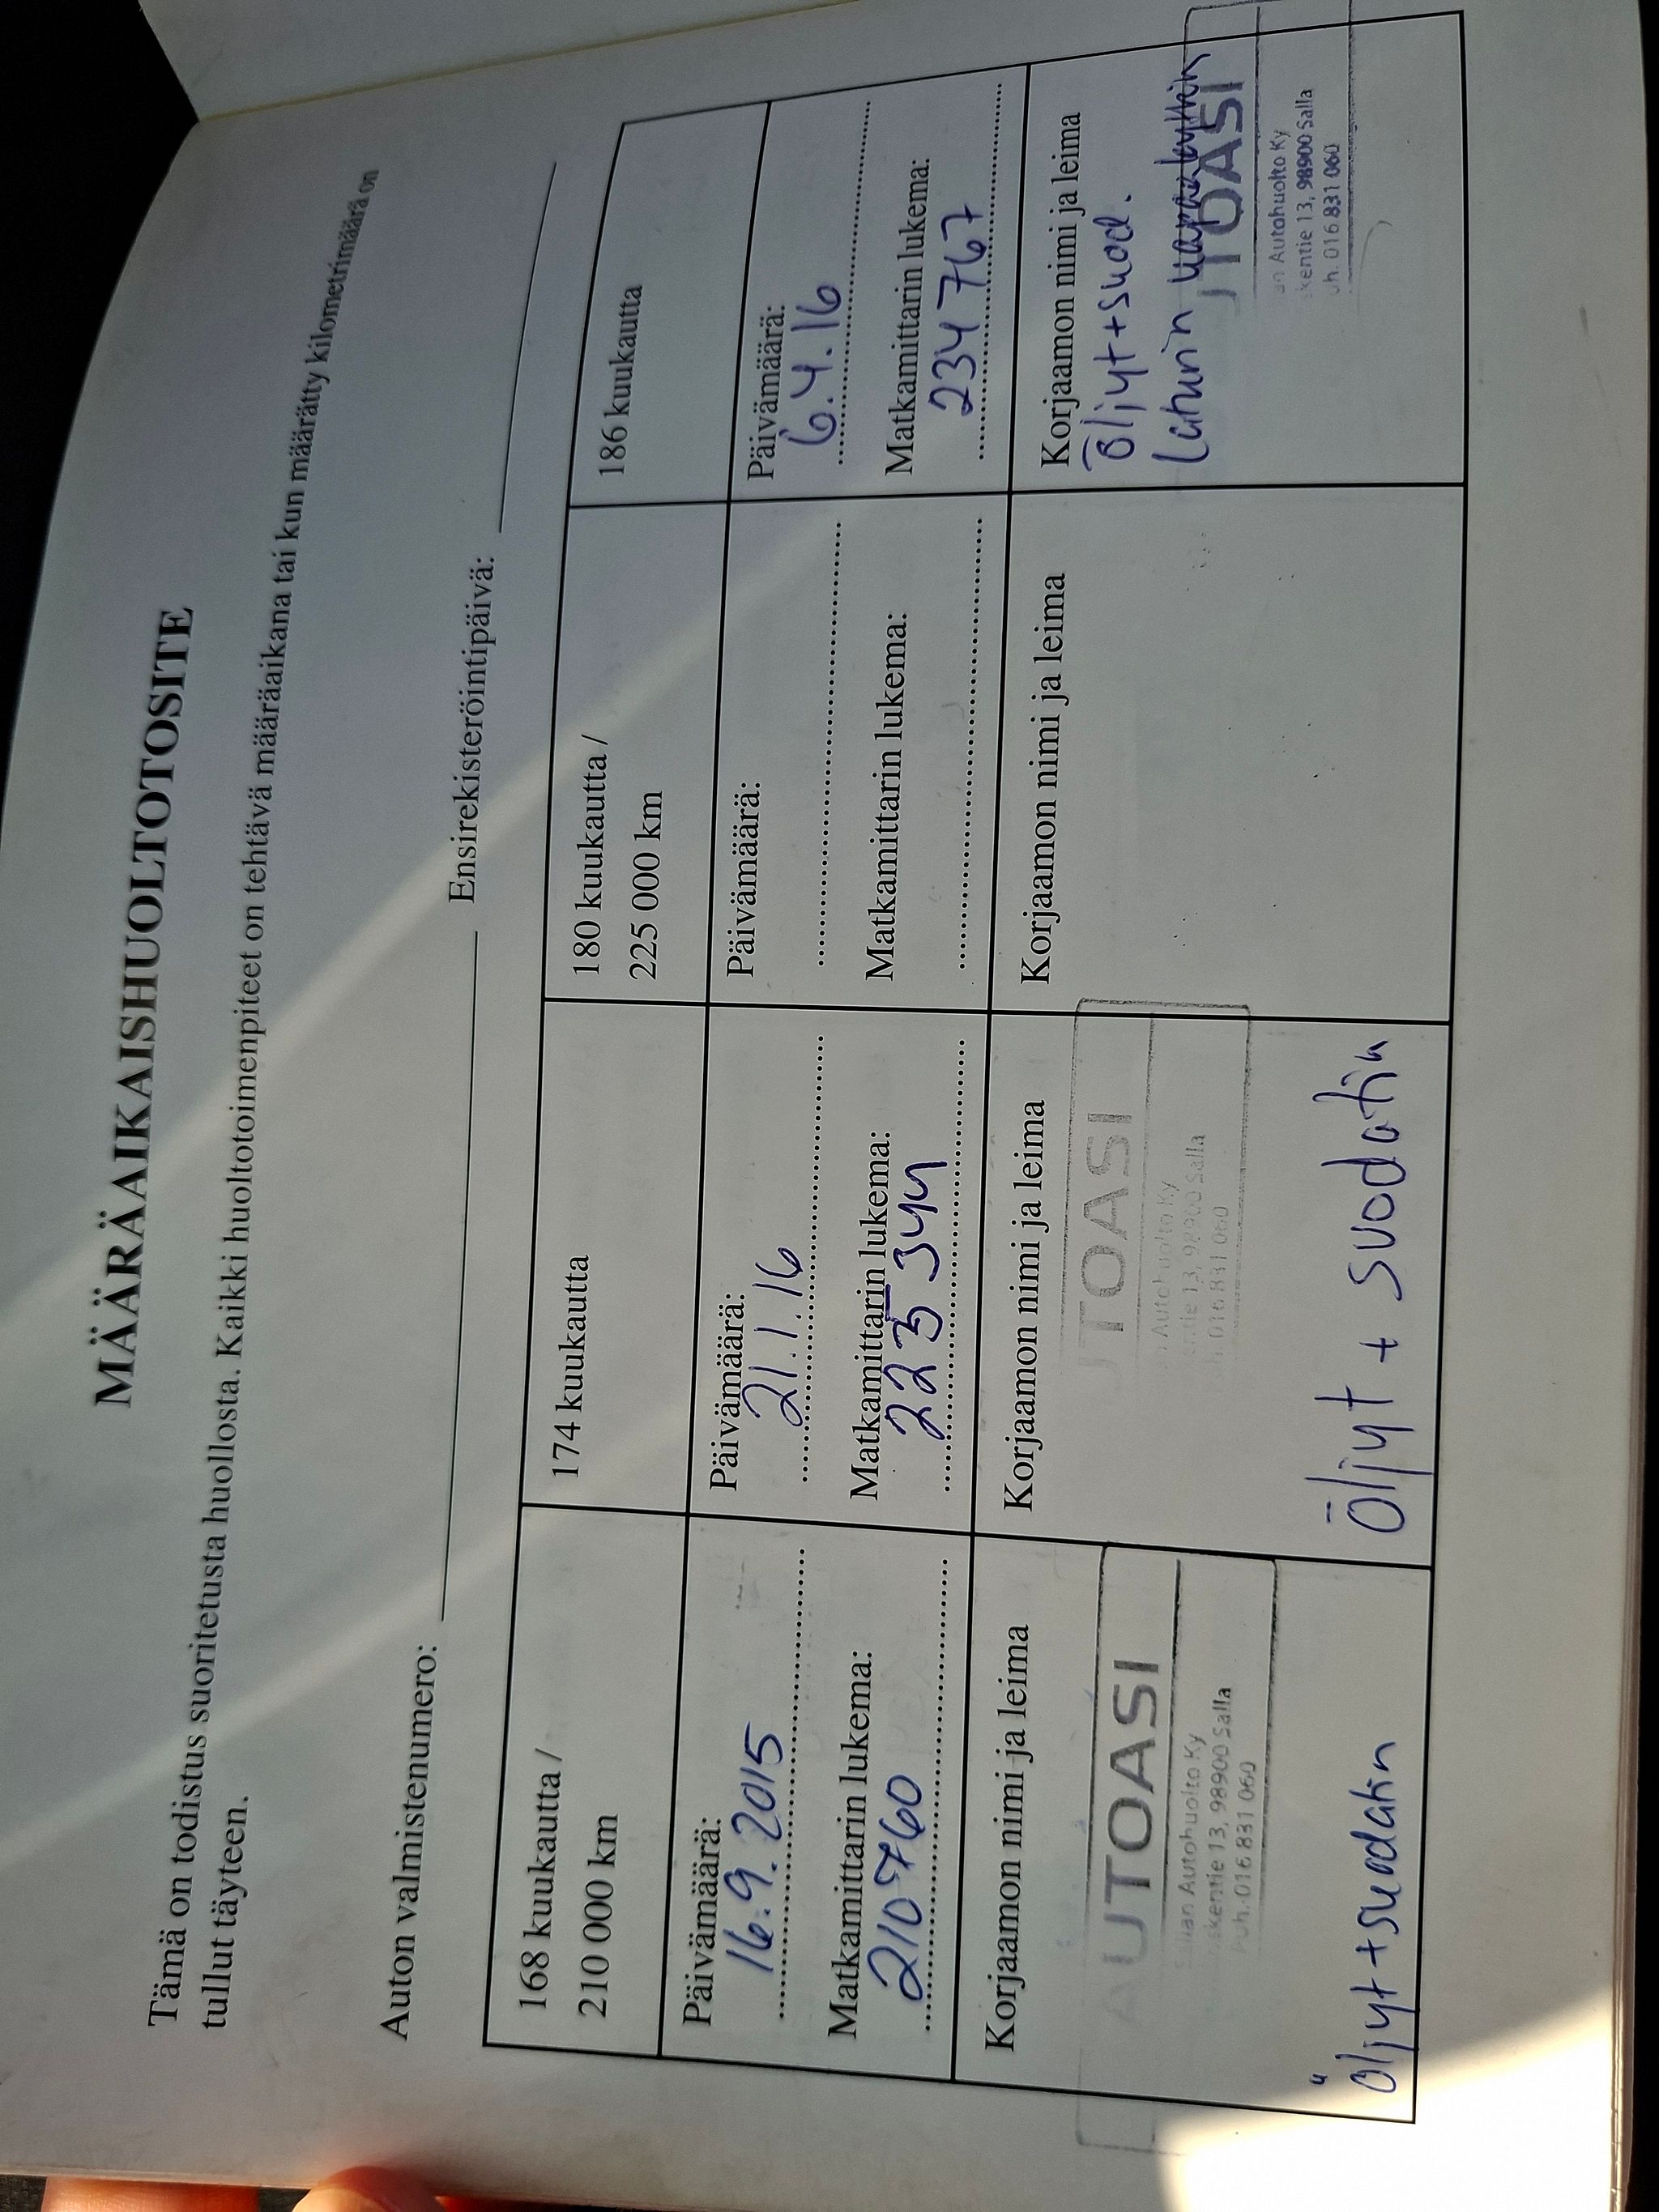 MÄÄRÄAIKAISHUOLTOTOSITE
Tämä on todistus suoritetusta huollosta. Kaikki huoltotoimenpiteet on tehtävä määräaikana tai kun määrätty kilometrimäärä on
tullut täyteen.
Auton valmistenumero:
Ensirekisteröintipäivä:
168 kuukautta /
210 000 km
Päivämäärä:
16.9.2015
Matkamittarin lukema:
210760
Korjaamon nimi ja leima
AUTOASI
Autohuolto Ky
kentie 13, 98900 Salla
Puh. 016 831 060
öljyt+suodatin
174 kuukautta
Päivämäärä:
21.1.16
Matkamittarin lukema:
225 344
Korjaamon nimi ja leima
UTOASI
Autohuolto Ky
entie 13, 98900 Salla
016 831 060
Öljyt + suodatin
180 kuukautta /
225 000 km
Päivämäärä:
Matkamittarin lukema:
Korjaamon nimi ja leima
186 kuukautta
Päivämäärä:
6.4.16
Matkamittarin lukema:
234 767
Korjaamon nimi ja leima
Öljyt+suod.
Laturin
UTOASI
an Autohuolto Ky
kentie 13, 98900 Salla
uh. 016 831 060